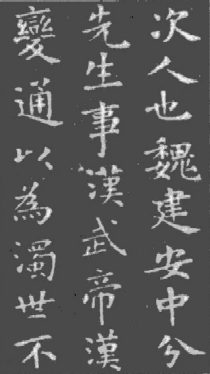 次人也魏建安中分
先生事漢武帝漢
變通以為濁世不